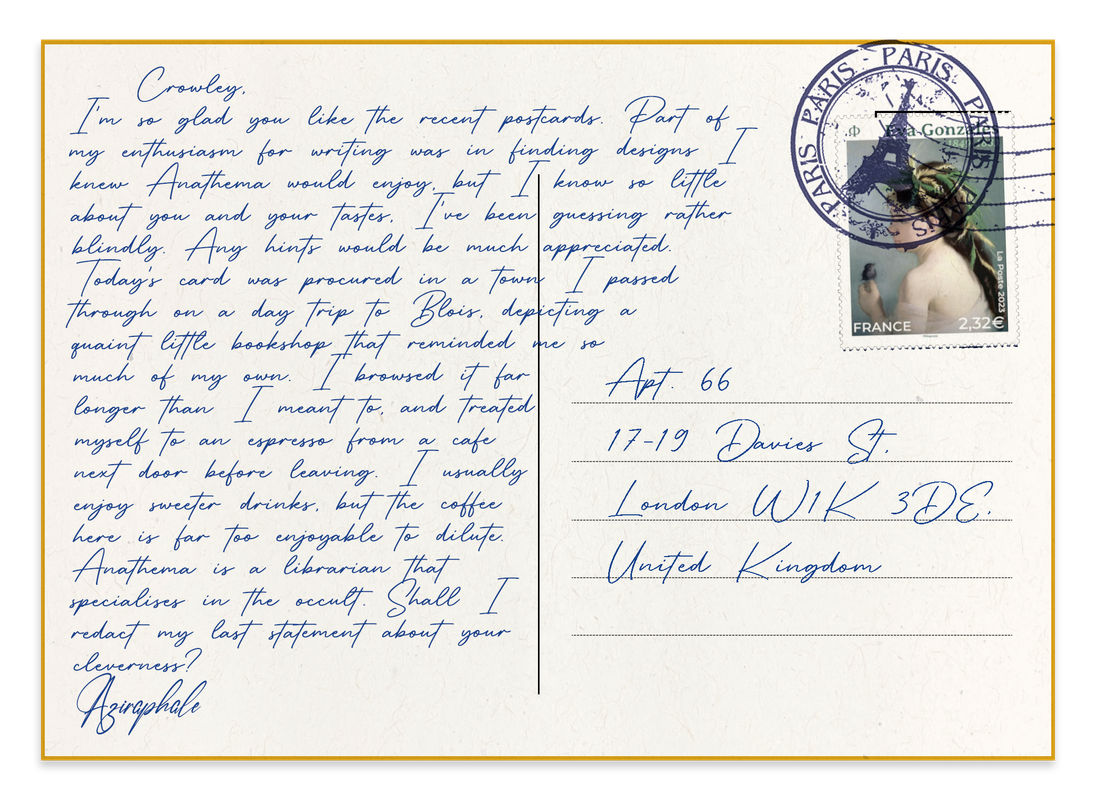 Crowley,
I'm so glad you like the recent postcards. Part of
my enthusiasm for writing was in finding designs I
knew Anathema would enjoy, but I know so little
about you and your tastes, I've been guessing rather
blindly. Any hints would be much appreciated.
Today's card was procured in a town I passed
through on a day trip to Blois, depicting a
quaint little bookshop that reminded me so
much of my own. I browsed it far
longer than I meant to, and treated
myself to an espresso from a cafe
next door before leaving. I usually
enjoy sweeter drinks, but the coffee
here is far too enjoyable to dilute.
Anathema is a librarian that
specialises in the occult. Shall I
redact my last statement about your
cleverness?
Aziraphale
PARIS · PARIS · PARIS · PARIS
Eva Gonz
La Poste 2023
FRANCE 2,32€
Apt. 66
17-19 Davies St,
London W1K 3DE.
United Kingdom